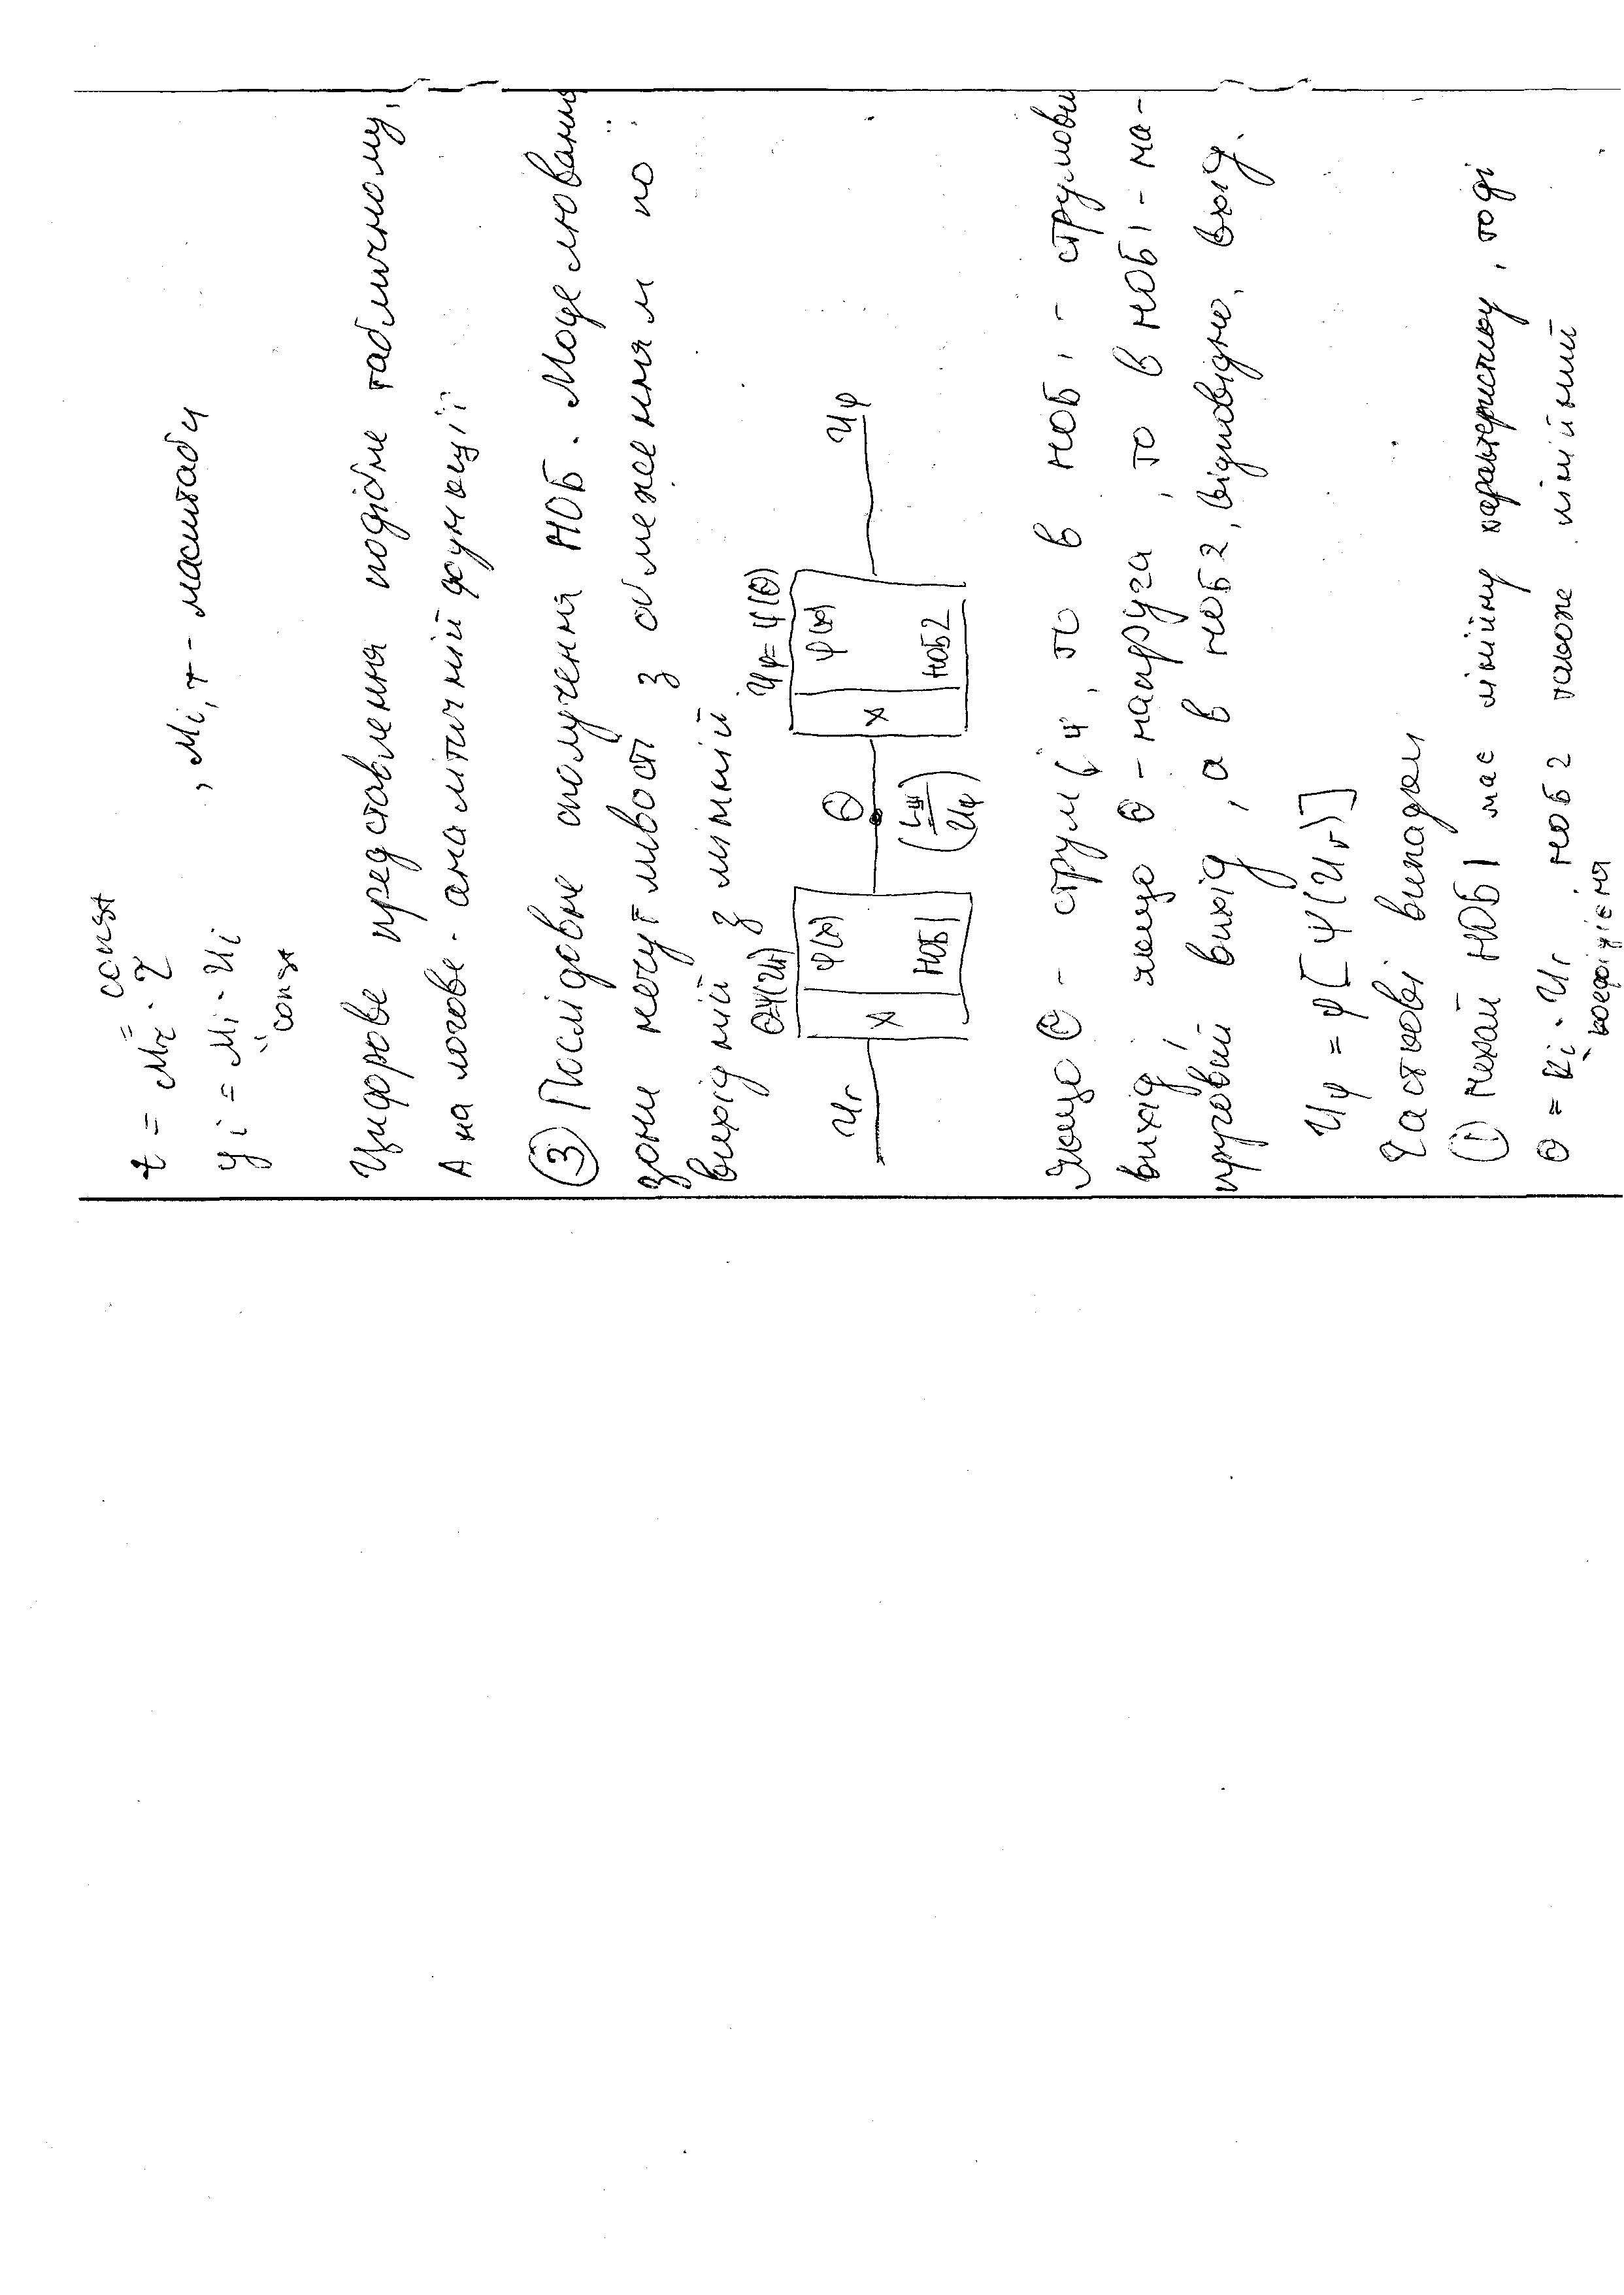 const
"
t = Mτ · τ
, Mi, τ - масштаби
yi = Mi · Ui
"
const
Цифрове представлення подібне табличному.
Аналогове - аналітичній функції
③ Послідовне сполучення НОБ. Моделювання
зони нечутливості з обмеженням по
вихідній з лінній
Θ=Ψ(Ur) Uφ = Ψ(Θ)
Ur X Ψ(x) НОБ1 Θ X φ(x) НОБ2 Uφ
Якщо Θ - струм, то в НОБ1 - струмовий
вихід, якщо Θ - напруга, то в НОБ1 - на-
пруговий вихід, а в НОБ2, відповідно, вхід.
Uφ = φ[Ψ(Ur)]
Часткові випадки
① Нехай НОБ1 має лінійну характеристику, тоді
Θ = Ki · Ur, НОБ2 також лінійний
"
коефіцієнт